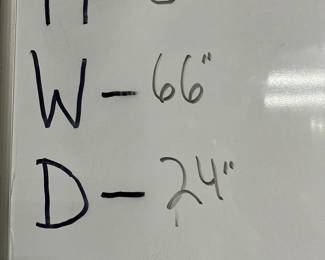 W - 66"
D - 24"